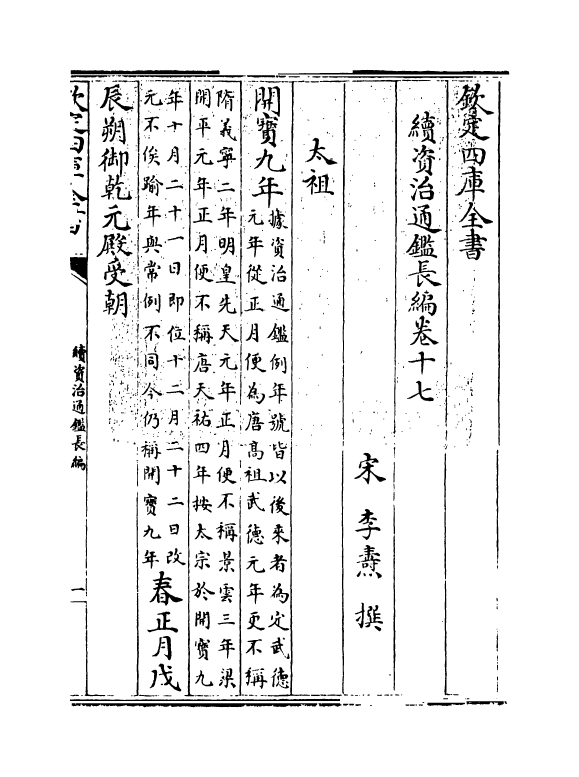 欽定四庫全書
續資治通鑑長編卷十七
宋 李燾 撰
太祖
開寶九年
據資治通鑑例年號皆以後來者為定武德
元年從正月便為唐高祖武德元年更不稱
隋義寧二年明皇先天元年正月便不稱景雲三年梁
開平元年正月便不稱唐天祐四年按太宗於開寶九
年十月二十一日即位十二月二十二日改
元不俟踰年與常例不同今仍稱開寶九年
春正月戊
辰朔御乾元殿受朝
續資治通鑑長編
一